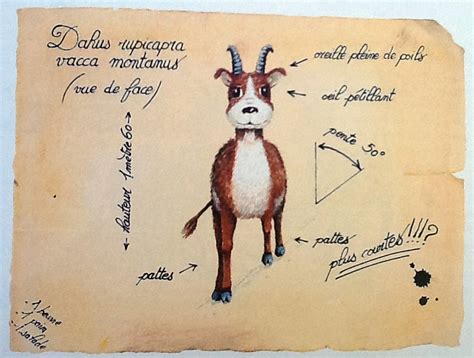 Dahus rupicapra
vacca montanus
(vue de face)
oreille pleine de poils
oeil pétillant
pente 50°
hauteur 1 mètre 60
pattes
pattes
plus courtes!!!?
1 beurre
1 pain
1 salade